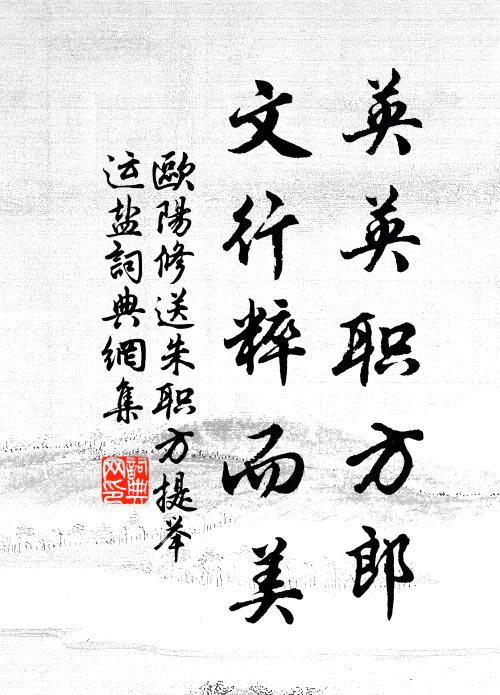 英英职方郎
文行粹而美
歐陽修送朱职方提举
运盐詞典網集
詞典网印